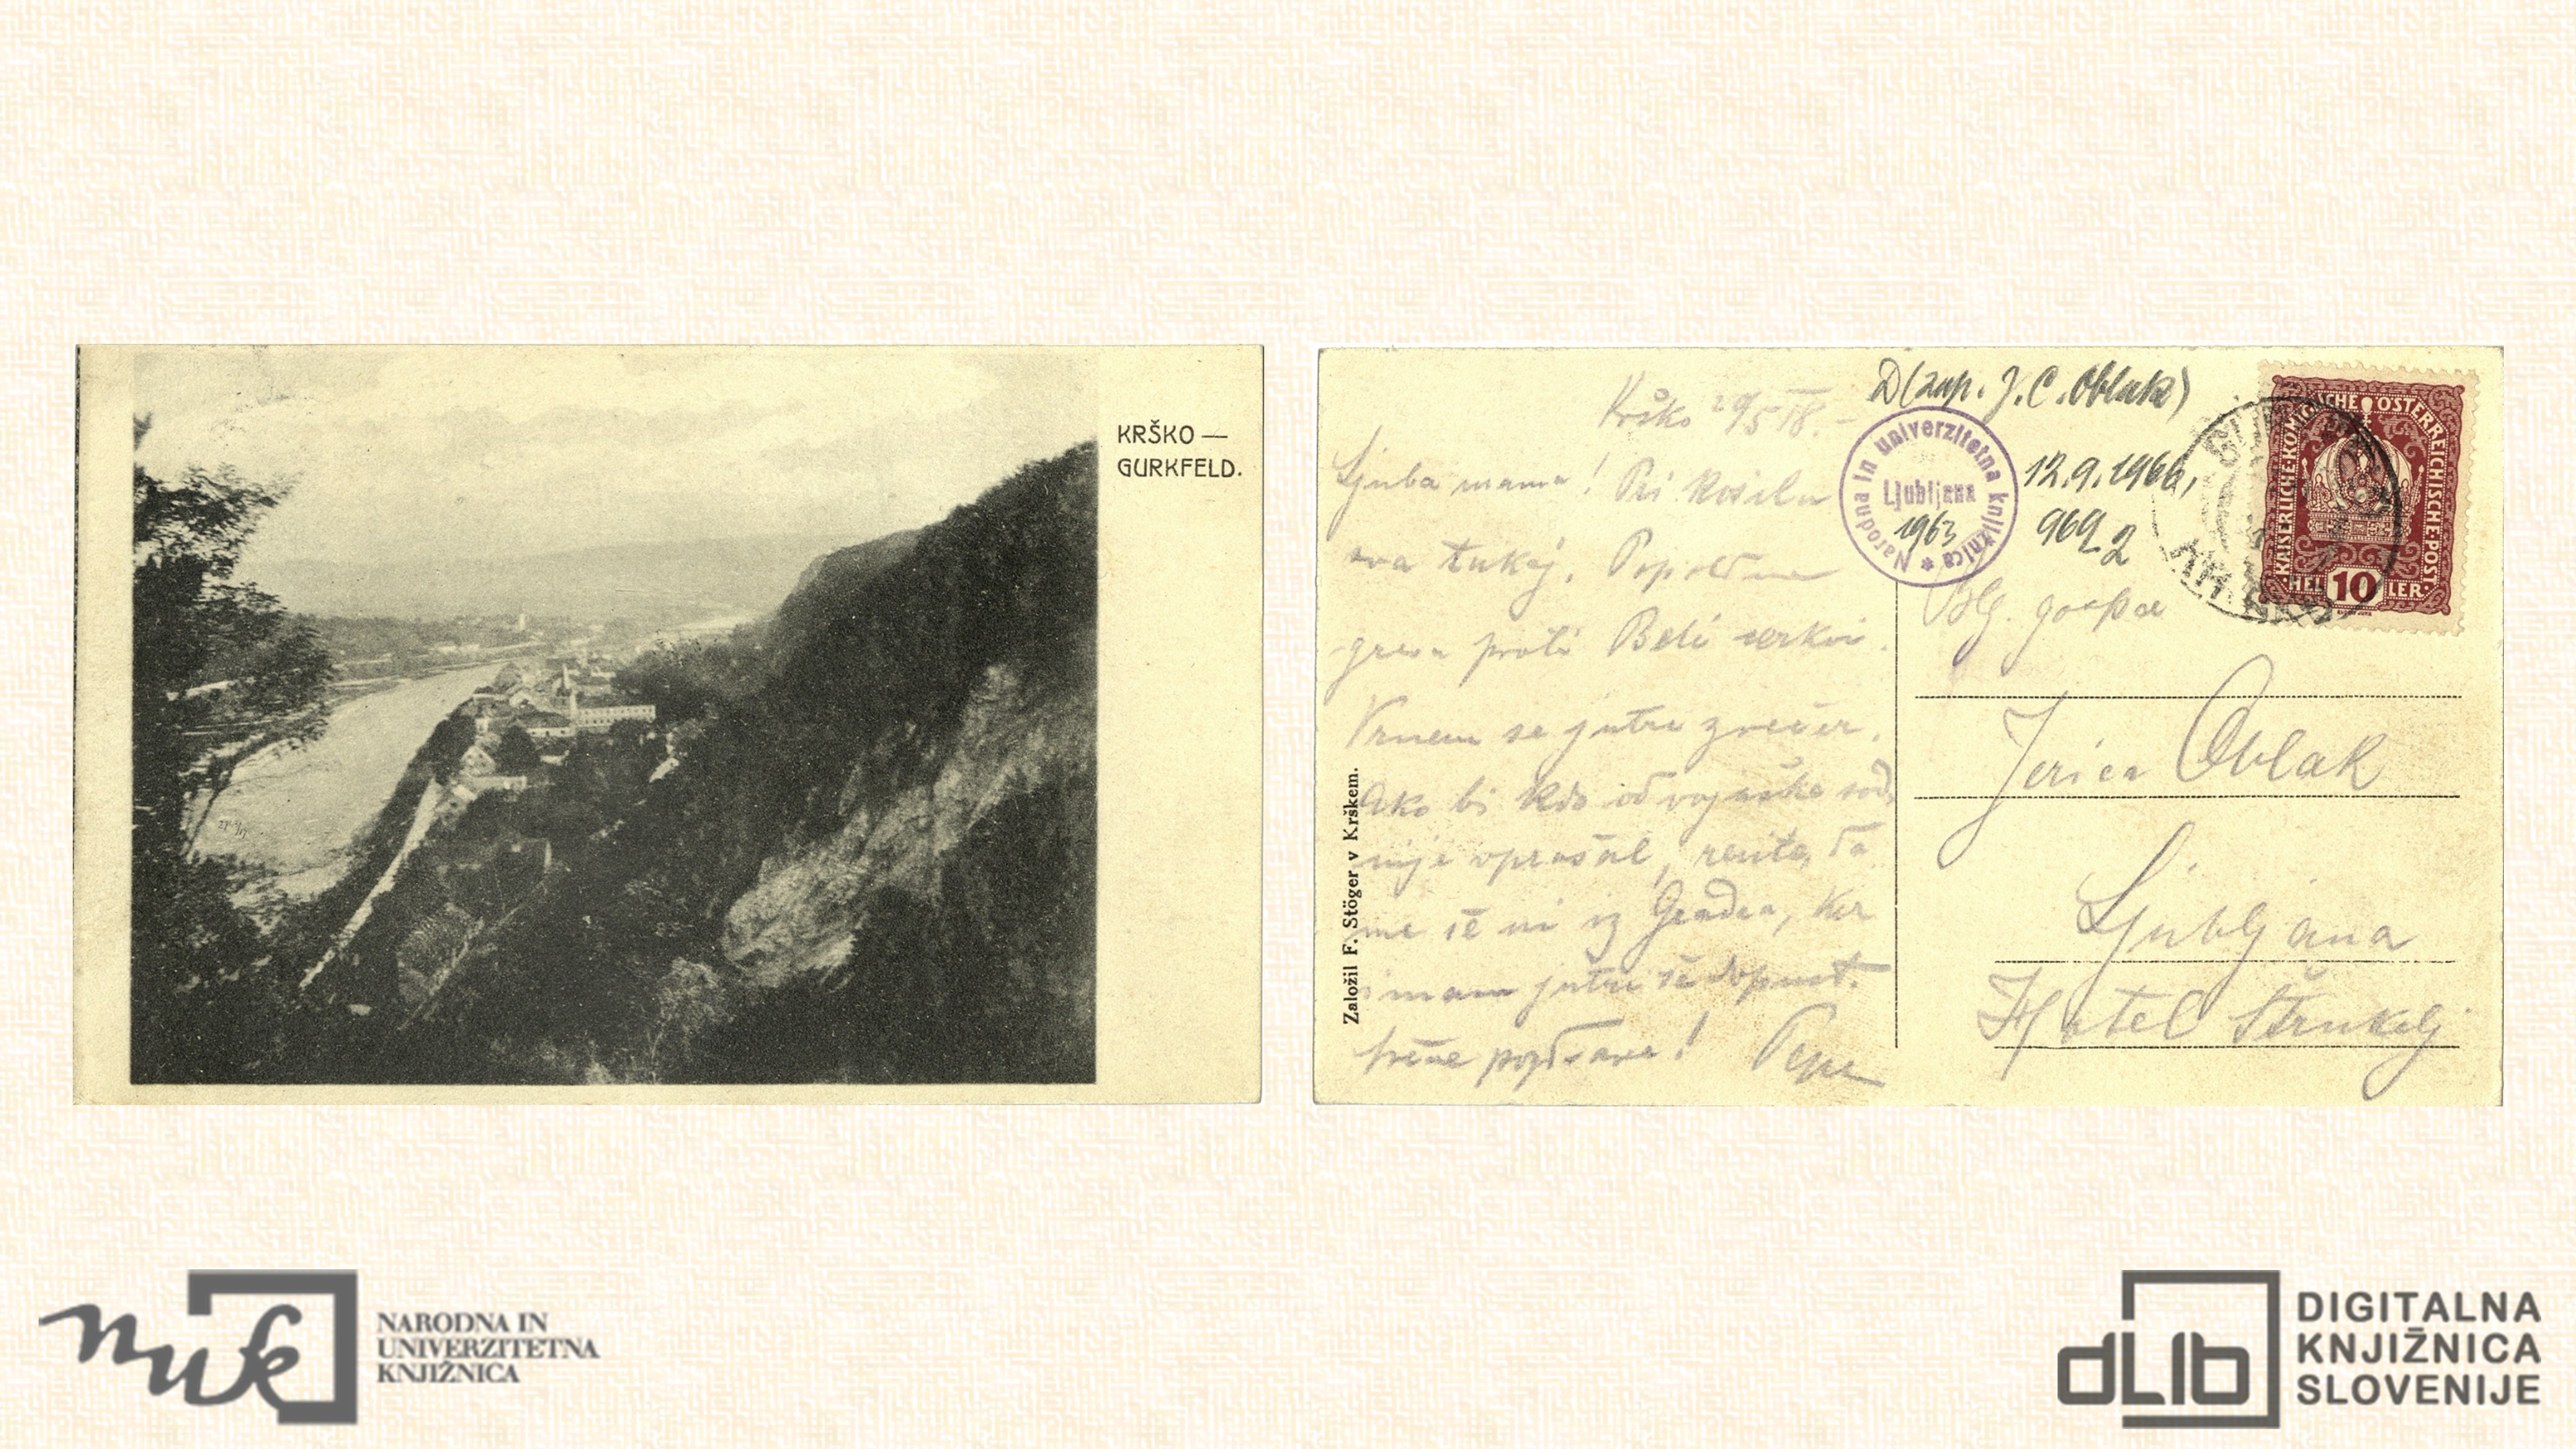 KRŠKO —
GURKFELD.
Krško 29/5 18.-
Ljuba mama! Pri kosilu
sva tukaj. Popoldne
greva proti Beli cerkvi.
Vrnem se jutri zvečer.
Ako bi kdo od vojaške sod
nije vprašal, recite, da
me še ni iz Gradca, ker
imam jutri še dopust.
Srčne pozdrave! Pepe
Založil F. Stöger v Krškem.
D (zap. J. C. Oblak)
Narodna in univerzitetna knjižnica *
Ljubljana
1963
12.9.1966,
969 2
KAISERLICHE·KÖNIGLICHE ÖSTERREICHISCHE·POST·
HEL 10 LER·
Blg. gospa
Jerica Oblak
Ljubljana
Hotel Štrukelj
nuk
NARODNA IN
UNIVERZITETNA
KNJIŽNICA
dLib
DIGITALNA
KNJIŽNICA
SLOVENIJE